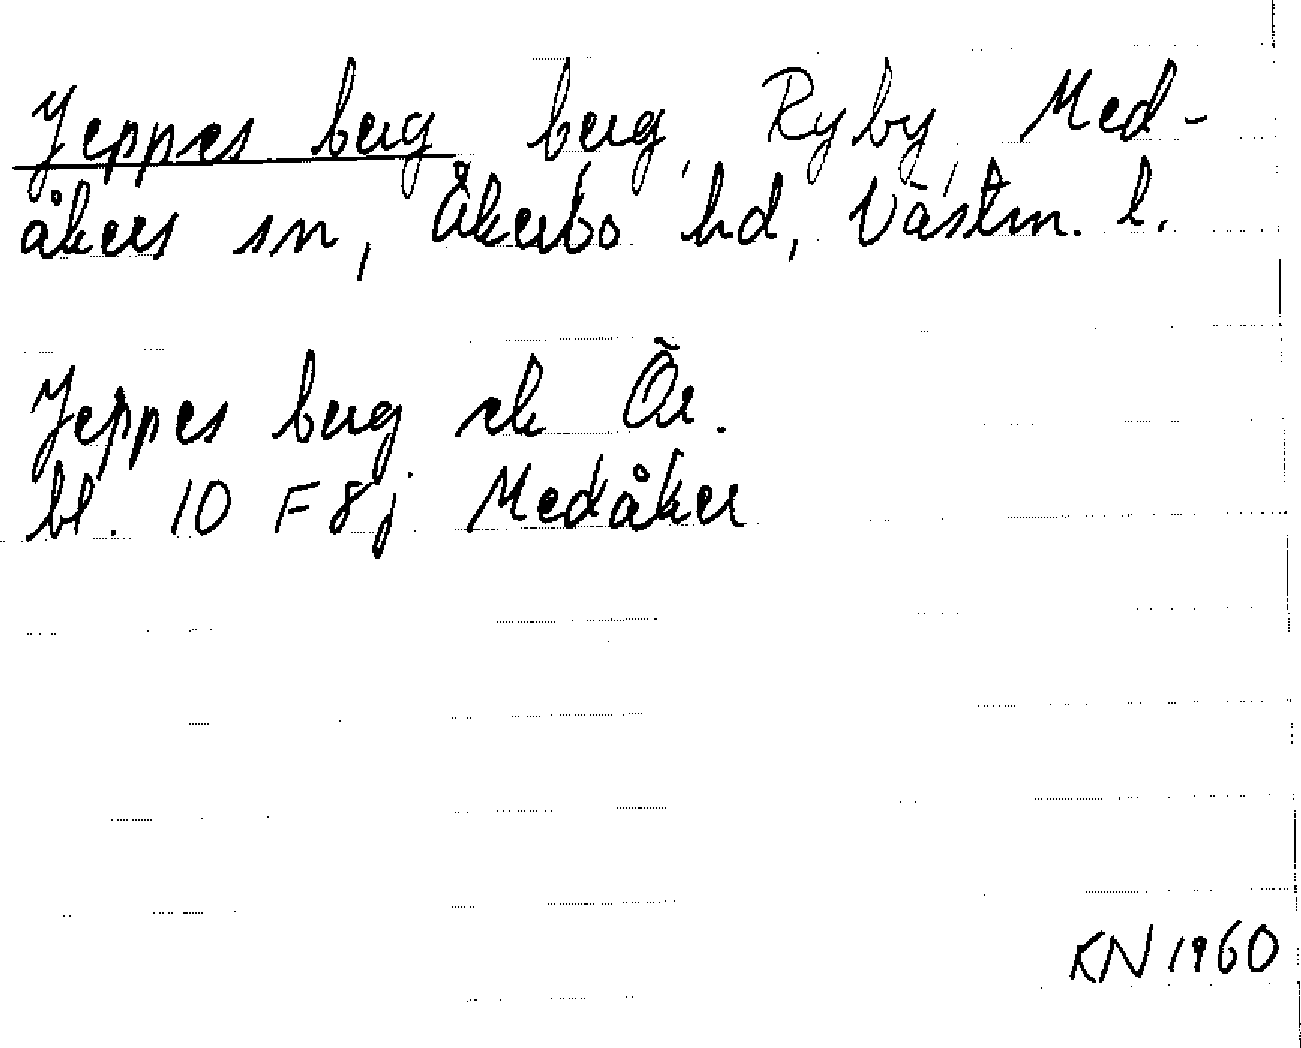 Jeppes berg berg, Ryby, Med-
åkers sn, Åkerbo hd, Västm. l.
Jeppes berg ek Ör.
bl. 10 F 8 j Medåker
KN 1960